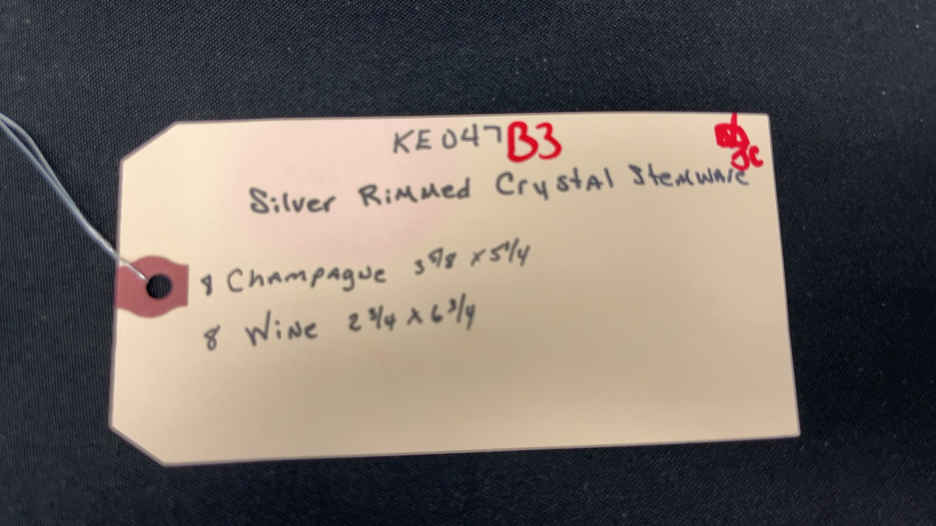 KE047 B3
JC
Silver Rimmed Crystal Stemware
8 Champagne 3 7/8 x 5 1/4
8 Wine 2 3/4 x 6 3/4